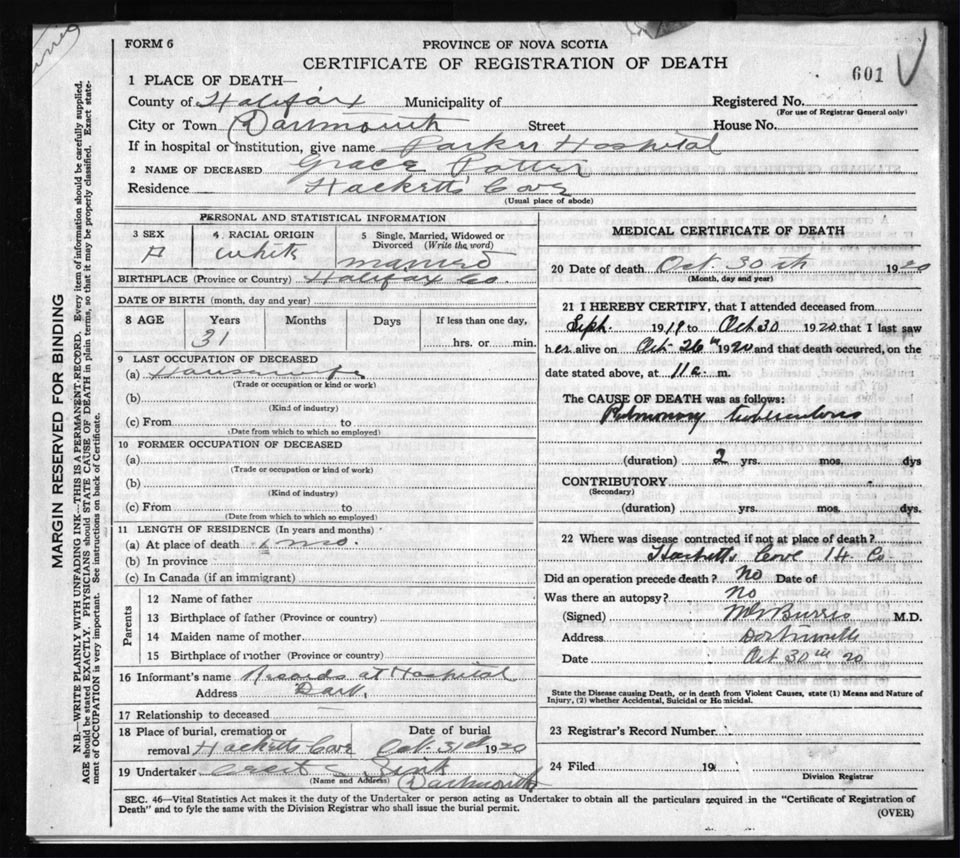 FORM 6
PROVINCE OF NOVA SCOTIA
CERTIFICATE OF REGISTRATION OF DEATH
601
1 PLACE OF DEATH—
County of Halifax Municipality of Registered No.
(For use of Registrar General only)
City or Town Dartmouth Street House No.
If in hospital or institution, give name Parker Hospital
2 NAME OF DECEASED Grace Potter
Residence Hacketts Cove
(Usual place of abode)
PERSONAL AND STATISTICAL INFORMATION
3 SEX 4 RACIAL ORIGIN 5 Single, Married, Widowed or Divorced (Write the word)
F White married
BIRTHPLACE (Province or Country) Halifax Co.
DATE OF BIRTH (month, day and year)
8 AGE Years Months Days If less than one day,
31 hrs. or min.
9 LAST OCCUPATION OF DECEASED
(a) Housewife
(Trade or occupation or kind or work)
(b)
(Kind of industry)
(c) From to
(Date from which to which so employed)
10 FORMER OCCUPATION OF DECEASED
(a)
(Trade or occupation or kind of work)
(b)
(Kind of industry)
(c) From to
(Date from which to which so employed)
11 LENGTH OF RESIDENCE (In years and months)
(a) At place of death mo.
(b) In province
(c) In Canada (if an immigrant)
Parents
12 Name of father
13 Birthplace of father (Province or country)
14 Maiden name of mother
15 Birthplace of mother (Province or country)
16 Informant's name Records at Hospital
Address Dart.
17 Relationship to deceased
18 Place of burial, cremation or Date of burial
removal Hacketts Cove Oct. 31st 1920
19 Undertaker
(Name and Address) Dartmouth
MEDICAL CERTIFICATE OF DEATH
20 Date of death Oct. 30th 1920
(Month, day and year)
21 I HEREBY CERTIFY, that I attended deceased from
Sept. 1919 to Oct 30 1920 that I last saw
her alive on Oct 26th 1920 and that death occurred, on the
date stated above, at 11 a. m.
The CAUSE OF DEATH was as follows:
Pulmonary tuberculosis
(duration) 2 yrs. mos. dys
CONTRIBUTORY
(Secondary)
(duration) yrs. mos. dys.
22 Where was disease contracted if not at place of death?
Hacketts Cove H. Co
Did an operation precede death? No Date of
Was there an autopsy? No
(Signed) Burris M.D.
Address Dartmouth
Date Oct 30th 20
State the Disease causing Death, or in death from Violent Causes, state (1) Means and Nature of
Injury, (2) whether Accidental, Suicidal or Homicidal.
23 Registrar's Record Number
24 Filed 19
Division Registrar
SEC. 46—Vital Statistics Act makes it the duty of the Undertaker or person acting as Undertaker to obtain all the particulars required in the "Certificate of Registration of
Death" and to fyle the same with the Division Registrar who shall issue the burial permit.
(OVER)
MARGIN RESERVED FOR BINDING
N.B.—WRITE PLAINLY WITH UNFADING INK—THIS IS A PERMANENT RECORD. Every item of information should be carefully supplied.
AGE should be stated EXACTLY. PHYSICIANS should STATE CAUSE OF DEATH in plain terms, so that it may be properly classified. Exact state-
ment of OCCUPATION is very important. See instructions on back of Certificate.